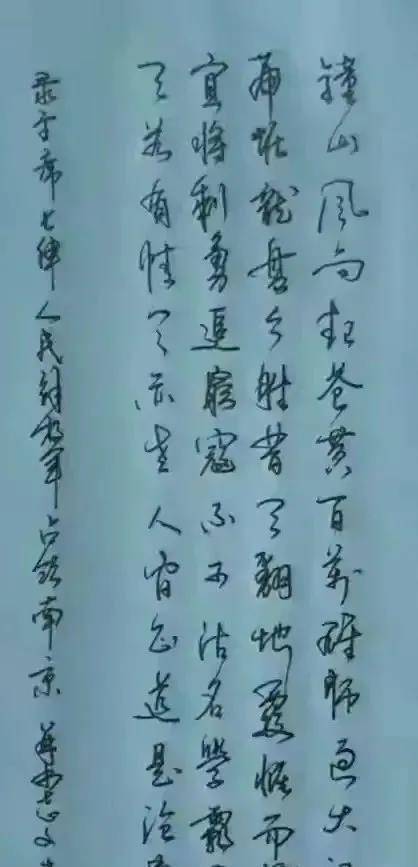 鐘山風雨起苍黄百萬雄師過大
虎踞龍盘今胜昔天翻地覆慨而
宜将剩勇追窮寇不可沽名學霸
天若有情天亦老人间正道是沧
录主席七律人民解放军占领南京